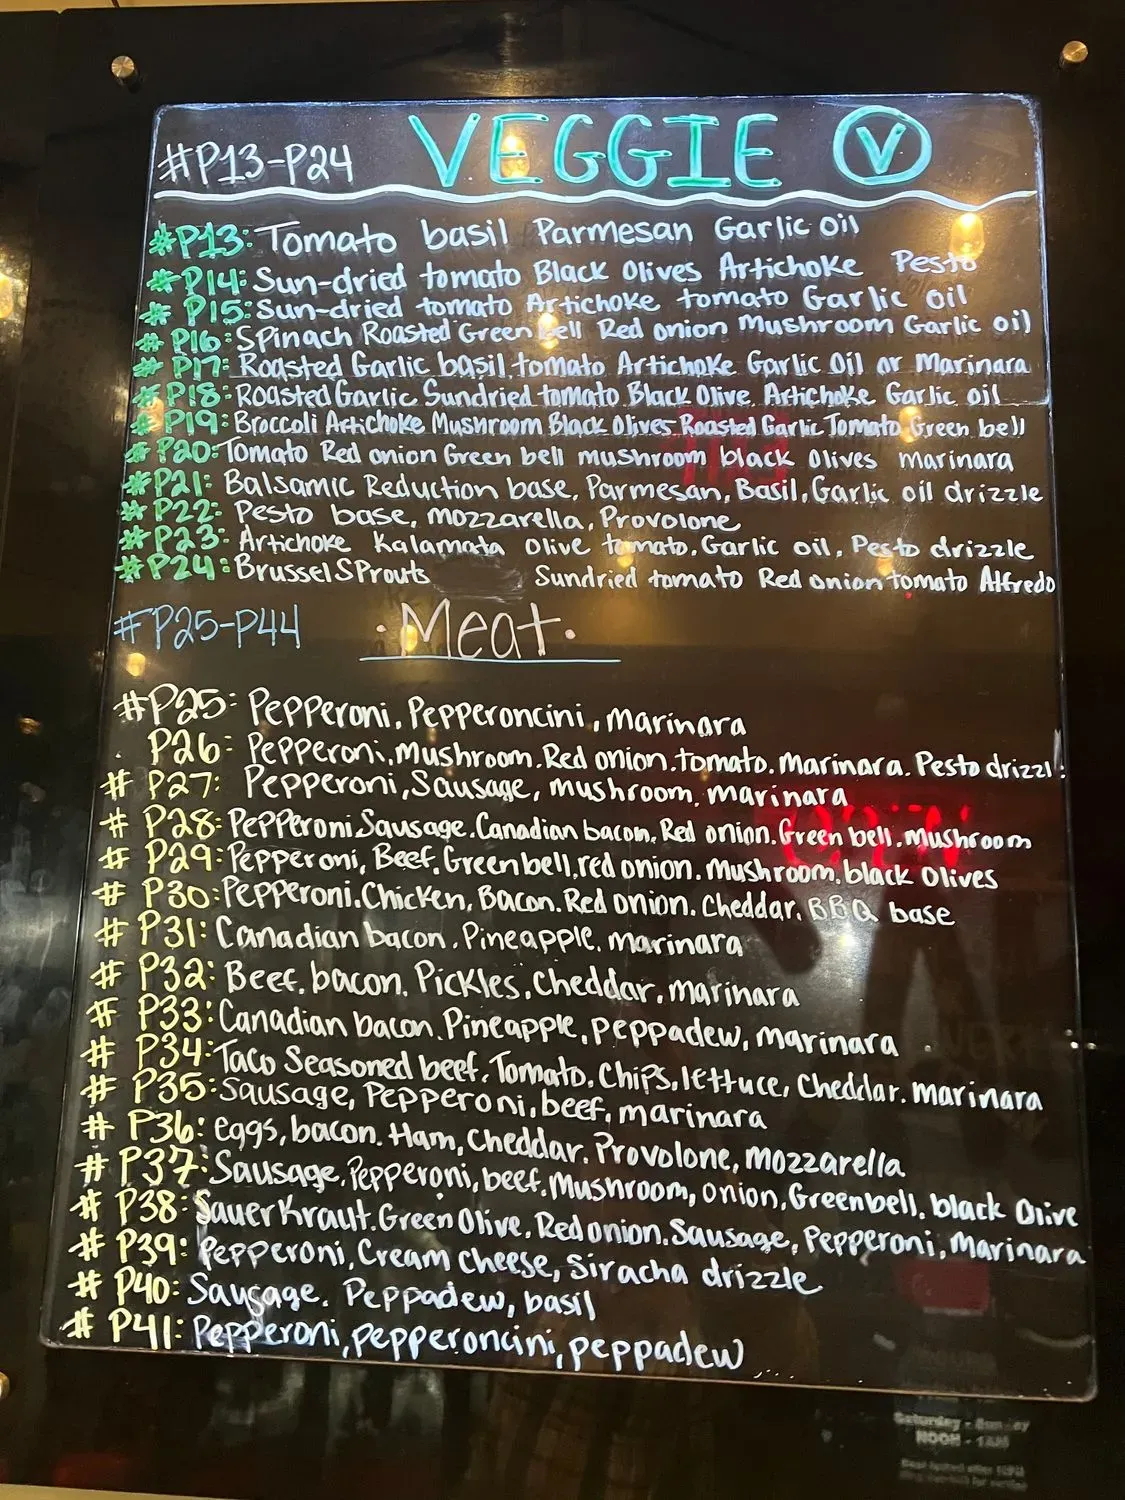 #P13-P24 VEGGIE V
#P13: Tomato basil Parmesan Garlic oil
#P14: Sun-dried tomato Black Olives Artichoke Pesto
#P15: Sun-dried tomato Artichoke tomato Garlic oil
#P16: Spinach Roasted Green bell Red onion Mushroom Garlic oil
#P17: Roasted Garlic basil, tomato Artichoke Garlic Oil or Marinara
#P18: Roasted Garlic Sundried tomato Black Olive Artichoke Garlic oil
#P19: Broccoli Artichoke Mushroom Black Olives Roasted Garlic Tomato Green bell
#P20: Tomato Red onion Green bell mushroom black olives marinara
#P21: Balsamic Reduction base, Parmesan, Basil, Garlic oil drizzle
#P22: Pesto base, mozzarella, Provolone
#P23: Artichoke Kalamata olive tomato, Garlic oil, Pesto drizzle
#P24: Brussel Sprouts Sundried tomato Red onion tomato Alfredo
#P25-P44 · Meat ·
#P25: Pepperoni, Pepperoncini, marinara
P26: Pepperoni, Mushroom, Red onion, tomato, Marinara, Pesto drizzl
# P27: Pepperoni, Sausage, mushroom, marinara
# P28: Pepperoni, Sausage, Canadian bacon, Red onion, Green bell, Mushroom
# P29: Pepperoni, Beef, Green bell, red onion, Mushroom, black olives
# P30: Pepperoni, Chicken, Bacon, Red onion, Cheddar, BBQ base
# P31: Canadian bacon, Pineapple, marinara
# P32: Beef, bacon, Pickles, Cheddar, marinara
# P33: Canadian bacon, Pineapple, peppadew, marinara
# P34: Taco Seasoned beef, Tomato, Chips, lettuce, Cheddar, marinara
# P35: Sausage, Pepperoni, beef, marinara
# P36: eggs, bacon, Ham, Cheddar, Provolone, Mozzarella
# P37: Sausage, Pepperoni, beef, Mushroom, onion, Green bell, black Olive
# P38: SauerKraut, Green Olive, Red onion, Sausage, Pepperoni, Marinara
# P39: Pepperoni, Cream Cheese, Siracha drizzle
# P40: Sausage, Peppadew, basil
# P41: Pepperoni, pepperoncini, peppadew
NOON - 1AM